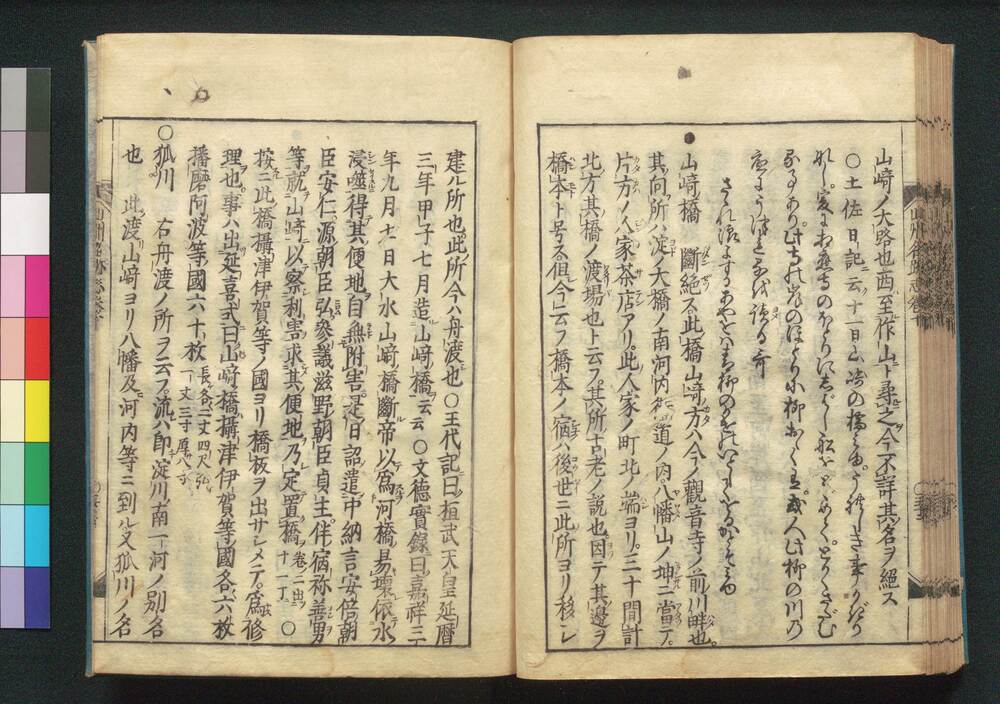 山崎ノ大路也西至作山ト尋之今不詳其名ヲ絕ス
○土佐日記云十一日山崎の橋みゆうれしき事かぎり
なし爰にお應寺のほとりにしばし船をとゞめてとかくさだむ
る事あり此寺の岸のほとりに柳おほくあり或人此柳の川の
底にうつれるを見て讀る哥
さゞれ浪よするあやをば青柳のかげのいとしておるかとぞみる
山崎橋 斷絶ス此橋山崎方ハ今ノ觀音寺ノ前川畔也
其向所ハ淀ノ大橋ノ南河内街道ノ内八幡山ノ坤ニ當テ
片方ノ人家茶店アリ此人家ノ町北ノ端ヨリ三十間計
北方其橋ノ渡場也ト云フ其所古老ノ説也因テ其邊ヲ
橋本ト号ス但今云フ橋本ノ宿ハ後世ニ此所ヨリ移シ
建ル所也此所今ハ舟渡也○王代記曰桓武天皇延暦
三年甲子七月造山崎橋云云○文德實錄曰嘉祥三
年九月七日大水山崎橋斷帝以爲河橋易壞依水
浸噬得其便地自無附害是日詔遣中納言安倍朝
臣安仁源朝臣弘參議滋野朝臣貞主伴宿祢善男
等就山崎以察利害求其便地乃定置橋 卷二出 十一丁 ○
按ニ此橋攝津伊賀等ノ國ヨリ橋板ヲ出サシメテ爲修
理也事ハ出延喜式曰山崎橋攝津伊賀等國各六枚
播磨阿波等國六十枚 長各二丈四尺弘 一丈三寸厚八寸
○狐川 右舟渡ノ所ヲ云フ流ハ即淀川南一河ノ別名
也 此渡山崎ヨリ八幡及河内等ニ到ル又狐川ノ名